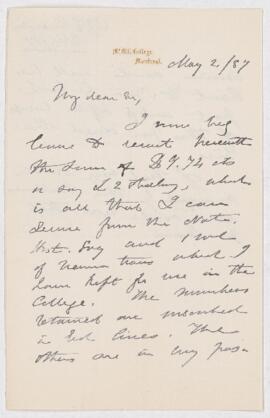 McGill College,
Montreal.
May 2/87
My dear Sir,
I now beg
leave to remit herewith
the sum of $9.74 cts
or say £2 Sterling, which
is all that I can
from the Nota.
and
of which I
have kept for use in the
College. The numbers
retained are inscribed
in red lines. The
others are in my